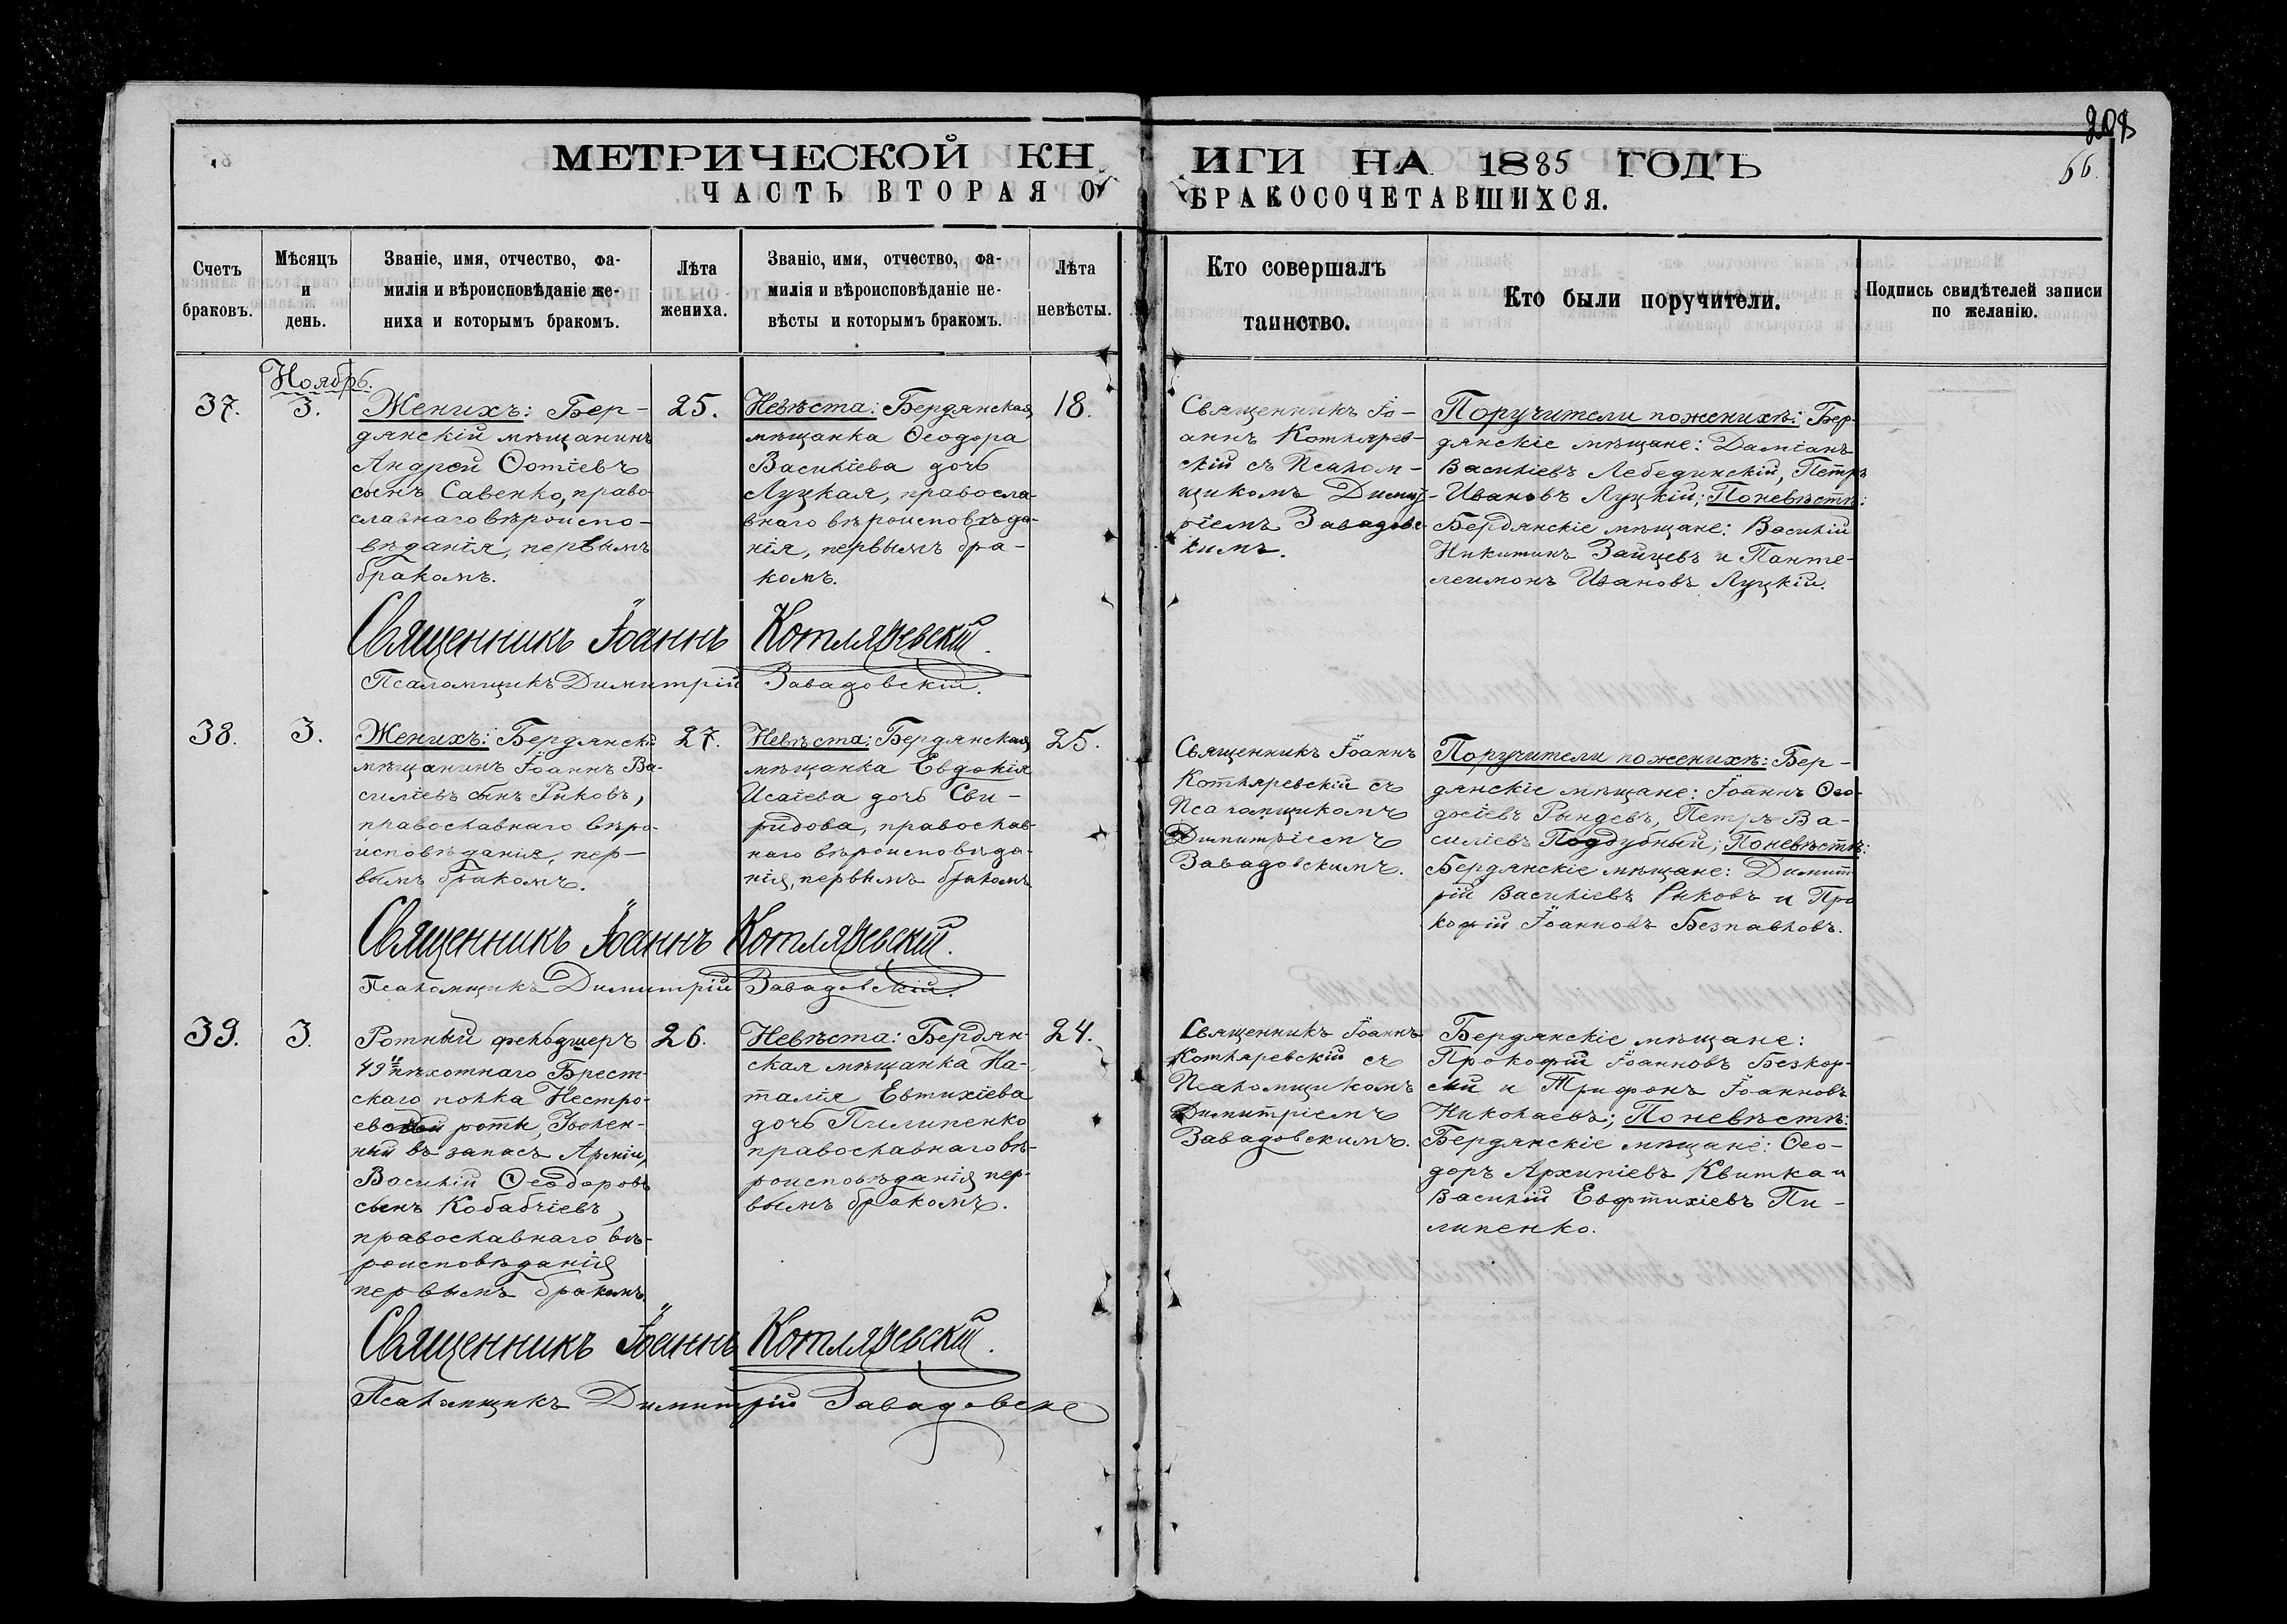 208
66.
МЕТРИЧЕСКОЙ КНИГИ НА 1885 ГОДЪ
ЧАСТЬ ВТОРАЯ О БРАКОСОЧЕТАВШИХСЯ.
Счетъ
браковъ.
Мѣсяцъ
и
день.
Званіе, имя, отчество, фа-
милія и вѣроисповѣданіе же-
ниха и которымъ бракомъ.
Лѣта
жениха.
Званіе, имя, отчество, фа-
милія и вѣроисповѣданіе не-
вѣсты и которымъ бракомъ.
Лѣта
невѣсты.
Кто совершалъ
таинство.
Кто были поручители.
Подпись свидѣтелей записи
по желанію.
Ноябрь.
37.
3.
Женихъ: Бер-
дянскій мѣщанинъ
Андрей Ѳотіевъ
сынъ Савенко, право-
славнаго вѣроиспо-
вѣданія, первымъ
бракомъ.
25.
Невѣста: Бердянская
мѣщанка Ѳеодора
Василіева дочь
Луцкая, правосла-
внаго вѣроисповѣда-
нія, первымъ бра-
комъ.
18.
Священникъ Іо-
аннъ Котляре-
скій съ Псалом-
щикомъ Димит-
ріемъ Завадовс-
кимъ.
Поручители по женихѣ: Бер-
дянскіе мѣщане: Даміанъ
Василіевъ Лебединскій, Петръ
Ивановъ Луцкій; По невѣстѣ:
Бердянскіе мѣщане: Василій
Никитинъ Зайцевъ и Панте-
леимонъ Ивановъ Луцкій.
Священникъ Іоаннъ Котляревскій.
Псаломщикъ Димитрій Завадовскій.
38.
3.
Женихъ: Бердянскій
мѣщанинъ Іоаннъ Ва-
силіевъ сынъ Рыковъ,
православнаго вѣро-
исповѣданія, пер-
вымъ бракомъ.
27.
Невѣста: Бердянская
мѣщанка Евдокія
Исаіева дочь Сви-
ридова, православ-
наго вѣроисповѣда-
нія, первымъ бракомъ
25.
Священникъ Іоаннъ
Котляревскій съ
Псаломщикомъ
Димитріемъ
Завадовскимъ.
Поручители по женихѣ: Бер-
дянскіе мѣщане: Іоаннъ Ѳео-
досіевъ Рындевъ, Петръ Ва-
силіевъ Поддубный; По невѣстѣ:
Бердянскіе мѣщане: Димит
рій Василіевъ Рыковъ и Про
кофій Іоанновъ Безпавловъ.
Священникъ Іоаннъ Котляревскій.
Псаломщикъ Димитрій Завадовскій.
39.
3.
Ротный фельдшеръ
49го пѣхотнаго Брест-
скаго полка Нестро-
евой роты, Уволен-
ный въ запасъ Арміи,
Василій Ѳеодоровъ
сынъ Кобабчіевъ,
православнаго вѣ-
роисповѣданія
первымъ бракомъ.
26.
Невѣста: Бердян-
ская мѣщанка На-
талія Евтихіева
дочь Пилипенко
православнаго вѣ-
роисповѣданія пер-
вымъ бракомъ.
24.
Священникъ Іоаннъ
Котляревскій съ
Псаломщикомъ
Димитріемъ
Завадовскимъ.
Бердянскіе мѣщане:
Прокофій Іоанновъ Безкор-
сый и Трифонъ Іоанновъ
Николаевъ; По невѣстѣ:
Бердянскіе мѣщане: Ѳео-
доръ Архипіевъ Квитка и
Василій Евфтихіевъ Пи-
липенко.
Священникъ Іоаннъ Котляревскій.
Псаломщикъ Димитрій Завадовскі